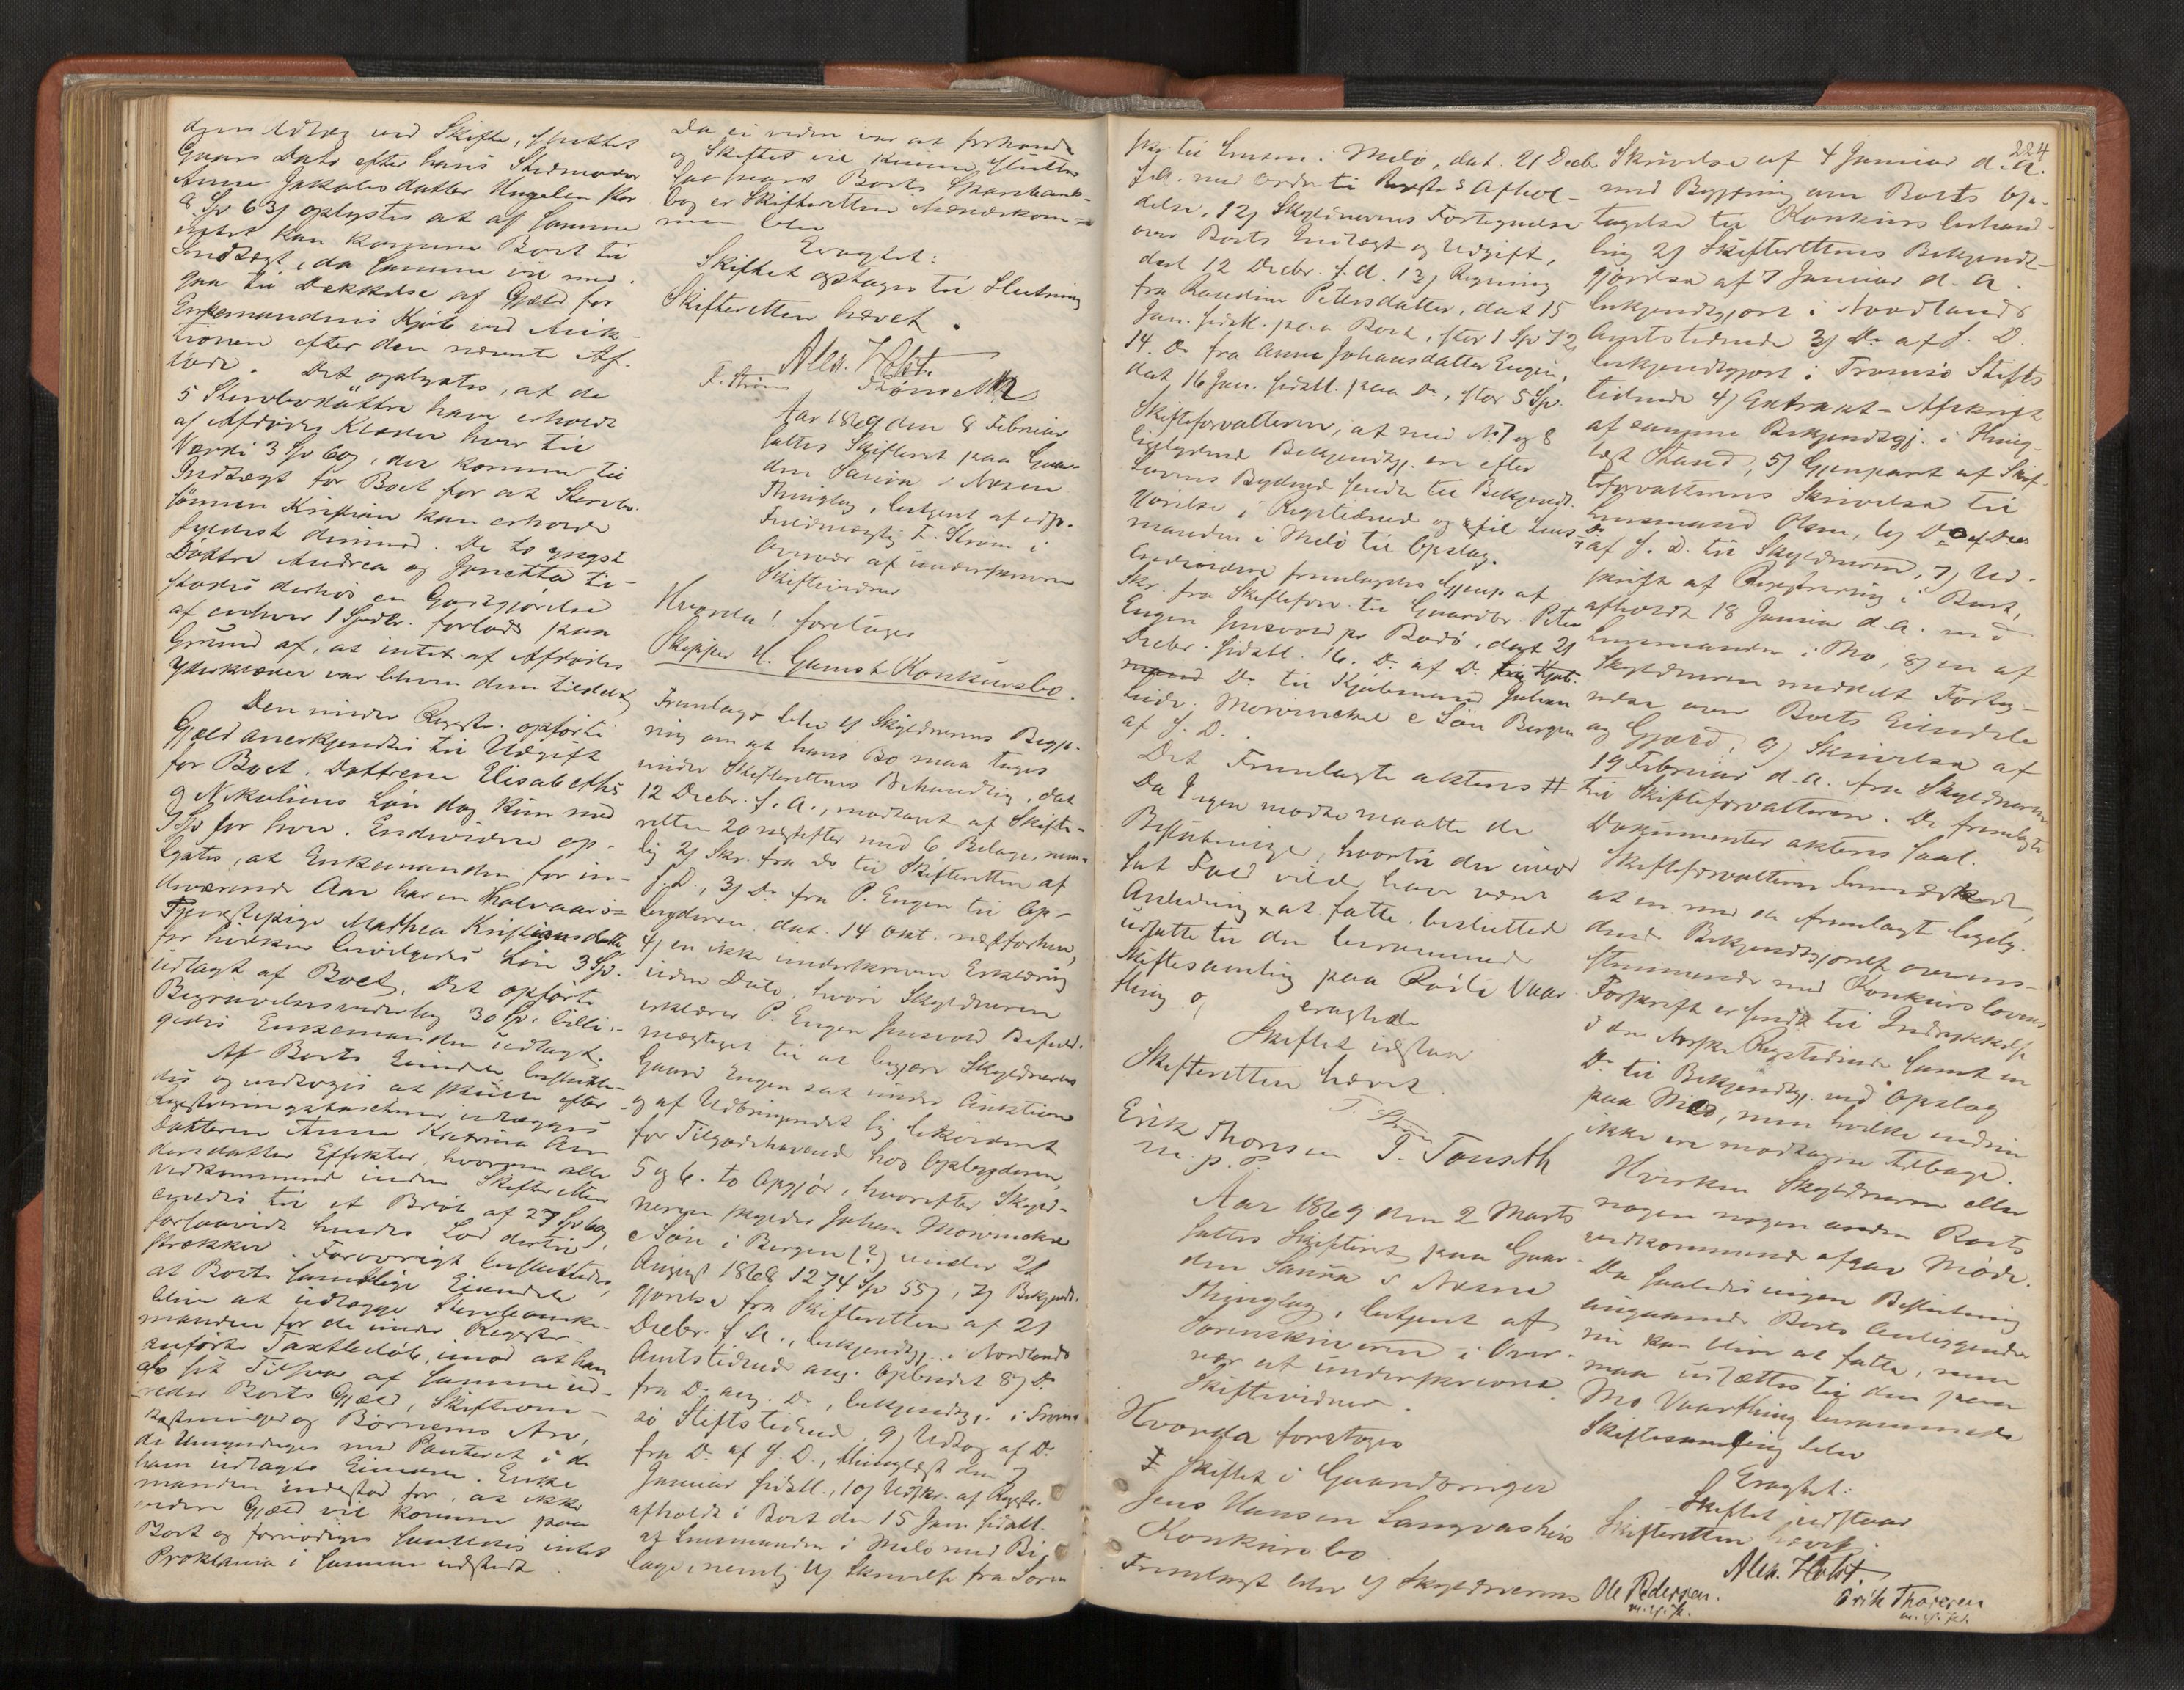 dens Udlæg ved Skifte, sluttet
Gaars Dato efter hans Stedmoder
Anne Jakobsdatter Stor
8 Sp 63 oplystes at af samme
intet kan komme Boet til
Indtægt, da samme vil med-
gaa til Dækkelse af Gjæld for
Enkemandens Kjøb ved Auk-
tionen efter den nævnte Af-
døde. Det oplystes, at de
5 Stervbodøttre have erholdt
af Afdødes Klæder hver til
Værdi 3 Sp 60, der komme til
Indtægt for Boet for at Stervbo-
sønnen Kristian kan erholde
Fyldest derimod. De to yngste
Døttre Andrea og Jonetta til-
stodes derhos en Godtgjørelse
af enhver 1 Spdlr. forlods paa
Grund af, at intet af Afdødes
Yderklæder var bleven dem tildelt
Den under Registr. opførte
Gjæld anerkjendtes til Udgift
for Boet. Døttrene Elisabeths
og Nikolines Løn dog kun med
3 Sp for hver. Endvidere op-
lystes, at Enkemanden for in-
deværende Aar har en halvaars-
Tjenestepige Mathea Kristiansdatter
for hvilken bevilgedes Løn 3 Sp.
udlagt af Boet. Det opførte
Begravelsesvederlag 30 Sp. billi-
gedes Enkemanden udlagt.
Af Boets Eiendele beslutte-
des og vedtoges at skulle efter
Registreringstaxterne udlægges
Datteren Anne Katrina An-
dersdatter Effekter, hvorom alle
Vedkommende inden Skifteretten
enedes til et Beløb af 27 Sp 60,
forsaavidt hendes Lod dertil
strækker. Forøvrigt besluttedes,
at Boets samtlige Eiendele
blive at udlægge Stervboenke-
manden for de under Registr.
anførte Taxtbeløb, imod at han
til Tilsvar af samme ud-
reder Boets Gjæld, Skifteom-
kostninger og Børnenes Arv,
de Umyndiges med Panteret i de
ham udlagte Eiendele. Enke-
manden indestod for, at ikke
videre Gjæld vil komme paa
Boet og fornødiges saaledes intet
Proklama i samme udstedt.
Da ei videre var at forhandle
og Skiftet vil kunne sluttes
saasnart Boets Sparebank-
bog er Skifteretten ihændekom-
men blev
Eragtet:
Skiftet optages til Slutning
Skifteretten hævet.
Alex. Holst.
F. Strøm
Aar 1869 den 8 Februar
sattes Skifteret paa Gaar-
den Saura i Næsne
Thinglag, betjent af edsv.
Fuldmægtig F. Strøm i
Overvær af underskrevne
Skiftevidner
Hvorda! foretoges
Skipper H. Gamst Konkursbo.
Fremlagt blev 1) Skyldnerens Begjæ-
ring om at hans Bo maa tages
under Skifterettens Behandling, dat.
12 Decbr. f. A., modtaget af Skifte-
retten 20 næstefter med 6 Bilage, nem-
lig 2) Skr. fra Do til Skifteretten af
s. D., 3) Do. fra P. Engen til Op-
byderen, dat. 14 Okt. næstforhen,
4) en ikke underskreven Erklæring
uden Dato, hvori Skyldneren
erklærer P. Engen Junsvold Befuld-
mægtiget til at begjære Skyldnerens
Gaard Engen sat under Auktion
og af Udbringendet sig bekvemt
for Tilgodehavende hos Opbyderen,
5 og 6. to Opgjør, hvorefter Skyld-
neren skyldes Johan Mowinckel
& Søn i Bergen (?) under 21
August 1868 1274 Sp 55, 7) Bekjendt-
gjørelse fra Skifteretten af 21
Decbr. f. A., bekjendtgj. i Nordlands
Amtstidende ang. Opbudet 8) Do.
fra Do. ang. Do., bekjendtgj. i Trom-
sø Stiftstidende, 9) Udtog af Do.
fra Do. af s. D., thinglæst den 7
Januar sidstl., 10) Udskr. af Registr.
afholdt i Boet den 15 Jan. sidstl.
af Lensmanden i Melø med Bi-
lage, nemlig 11) Skrivelse fra Soren-
224
skr. til Lensm. i Melø, dat. 21 Decbr
f. A. med Ordre til Registrs Afhol-
delse, 12) Skyldnerens Fortegnelse
over Boets Indtægt og Udgift,
dat 12 Decbr. f. A. 13) Regning
fra Petersdatter, dat 15
Jan. sidstl. paa Boet, stor 1 Sp 72,
14. Do fra Anne Johansdatter Engen,
dat. 16 Jan. sidstl. paa Do, stor 5 Sp.
Skifteforvalteren, at med No 7 og 8
ligelydende Bekjendtgj. ere efter
Lovens Bydende sendte til Bekjendt-
gjørelse i Rigstidende og til Lens-
manden i Melø til Opslag.
Endvidere fremlagdes Gjenp. af
Skr. fra Skiftefor. til Gaardbr. Peter
Engen Junsvold pr Bodø, dat 21
Decbr. sidstl. 16. Do. af Do.
Do. til Kjøbmand Johan
Mowinckel & Søn Bergen
af s. D.
Det Fremlagte akteres #
Da Ingen mødte maatte de
Beslutninger, hvortil der imod-
sat Fald vilde have været
Anledning at fatte besluttes
udsatte til den berammede
Skiftesamling paa Rødø Vaar-
thing og eragtede
Skiftet udstaar
Skifteretten hævet.
F. Strøm
Erik Thorsen J. Tonseth
m. p. P.
Aar 1869 den 2 Marts
sattes Skifteret paa Gaar-
den Saura i Næsne
Thinglag, betjent af
Sorenskriveren i Over-
vær af underskrevne
Skiftevidner.
Hvorda foretoges
Skiftet i Gaardbruger
Jens Hansen Langvasheis
Konkursbo.
Fremlagt blev 1) Skyldnerens
Skrivelse af 4 Januar d. A.
med Begjæring om Boets Op-
tagelse til Konkurs behand-
ling 2) Skifterettens Bekjendt-
gjørelse af 7 Januar d. A.
bekjendtgjort i Nordlands
Amtstidende 3) Do. af s. D.
bekjendtgjort i Tromsø Stifts
tidende 4) Extrakt-Afskrift
af samme Bekjendtgj. i thing-
læst Stand, 5) Gjenpart af Skif-
teforvalterens Skrivelse til
Lensmand Olsen, 6) Do
af s. D. til Skyldneren, 7) Ud-
skrift af Registrering i Boet,
afholdt 18 Januar d. A. ved
Lensmanden i Mo, 8) en af
Skyldneren meddelt Forteg-
nelse over Boets Eiendele
og Gjæld, 9) Skrivelse af
19 Februar d. A. fra Skyldneren
til Skifteforvalteren. De fremlagte
Dokumenter akteres saal.
Skifteforvalteren bemærkede,
at en med de fremlagte ligely-
dende Bekjendtgjørelse overens-
stemmende med Konkurslovens
Forskrift er sendt til Indrykkelse
i den Norske Rigstidende samt en
Do. til Bekjendtgj. ved Opslag
paa Mo, men hvilke endnu
ikke ere modtagne tilbage.
Hverken Skyldneren eller
nogen nogen anden Boets
vedkommende afgav Møde.
Da saaledes ingen Beslutning
angaaende Boets Anliggender
nu kan blive at fatte, men
maa udsættes til den paa
Mo Vaarthing berammede
Skiftesamling blev
Eragtet:
Skiftet udstaar
Skifteretten hævet.
Alex. Holst.
Ole Pedersen. Erik Thoresen
m. p. P. m. p. P.